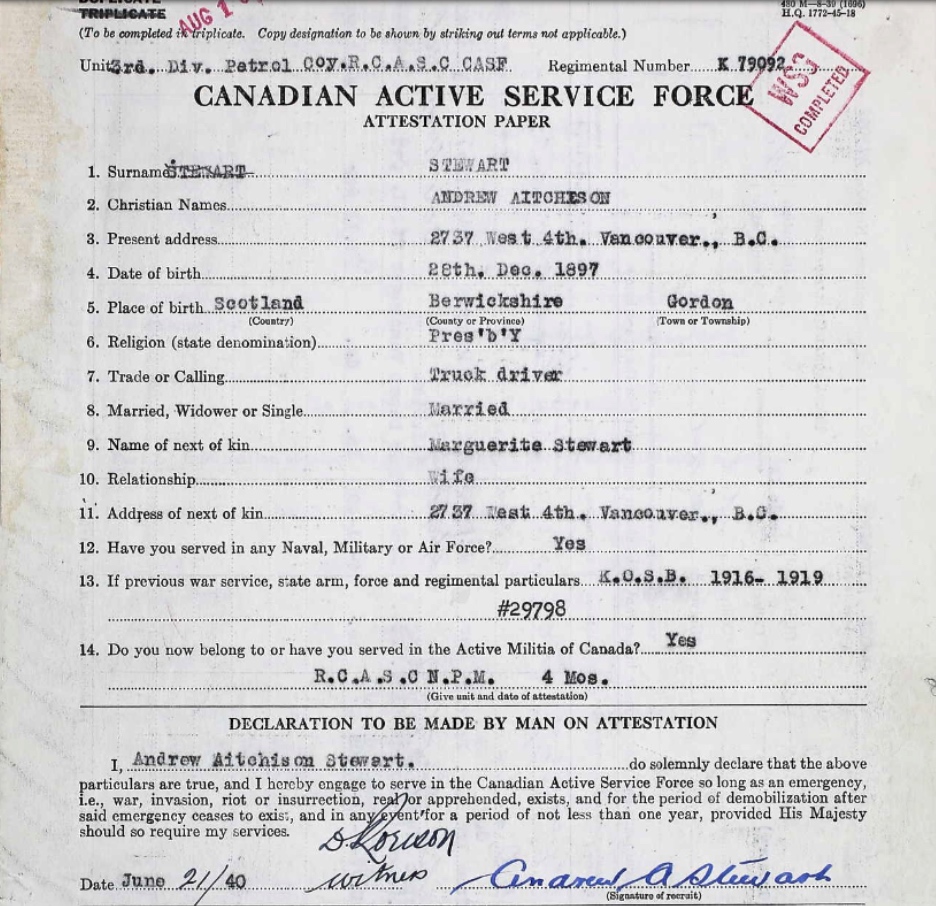 DUPLICATE
TRIPLICATE
AUG 1
480 M—8-39 (1696)
H.Q. 1772-45-18
(To be completed in triplicate. Copy designation to be shown by striking out terms not applicable.)
Unit 3rd. Div. Patrol Coy.R.C.A.S.C CASF Regimental Number K 79092
WSG COMPLETED
CANADIAN ACTIVE SERVICE FORCE
ATTESTATION PAPER
1. Surname STEWART STEWART
2. Christian Names ANDREW AITCHESON
3. Present address 2737 West 4th. Vancouver., B.C.
4. Date of birth 28th. Dec. 1897
5. Place of birth Scotland Berwickshire Gordon
(Country) (County or Province) (Town or Township)
6. Religion (state denomination) Pres'b'Y
7. Trade or Calling Truck driver
8. Married, Widower or Single Married
9. Name of next of kin Marguerite Stewart
10. Relationship Wife
11. Address of next of kin 2737 West 4th. Vancouver., B.C.
12. Have you served in any Naval, Military or Air Force? Yes
13. If previous war service, state arm, force and regimental particulars K.O.S.B. 1916- 1919
#29798
14. Do you now belong to or have you served in the Active Militia of Canada? Yes
R.C.A.S.C N.P.M. 4 Mos.
(Give unit and date of attestation)
DECLARATION TO BE MADE BY MAN ON ATTESTATION
I, Andrew Aitchison Stewart. do solemnly declare that the above
particulars are true, and I hereby engage to serve in the Canadian Active Service Force so long as an emergency,
i.e., war, invasion, riot or insurrection, real or apprehended, exists, and for the period of demobilization after
said emergency ceases to exist, and in any event for a period of not less than one year, provided His Majesty
should so require my services.
Date June 21/40 witness Andrew A Stewart
(Signature of recruit)